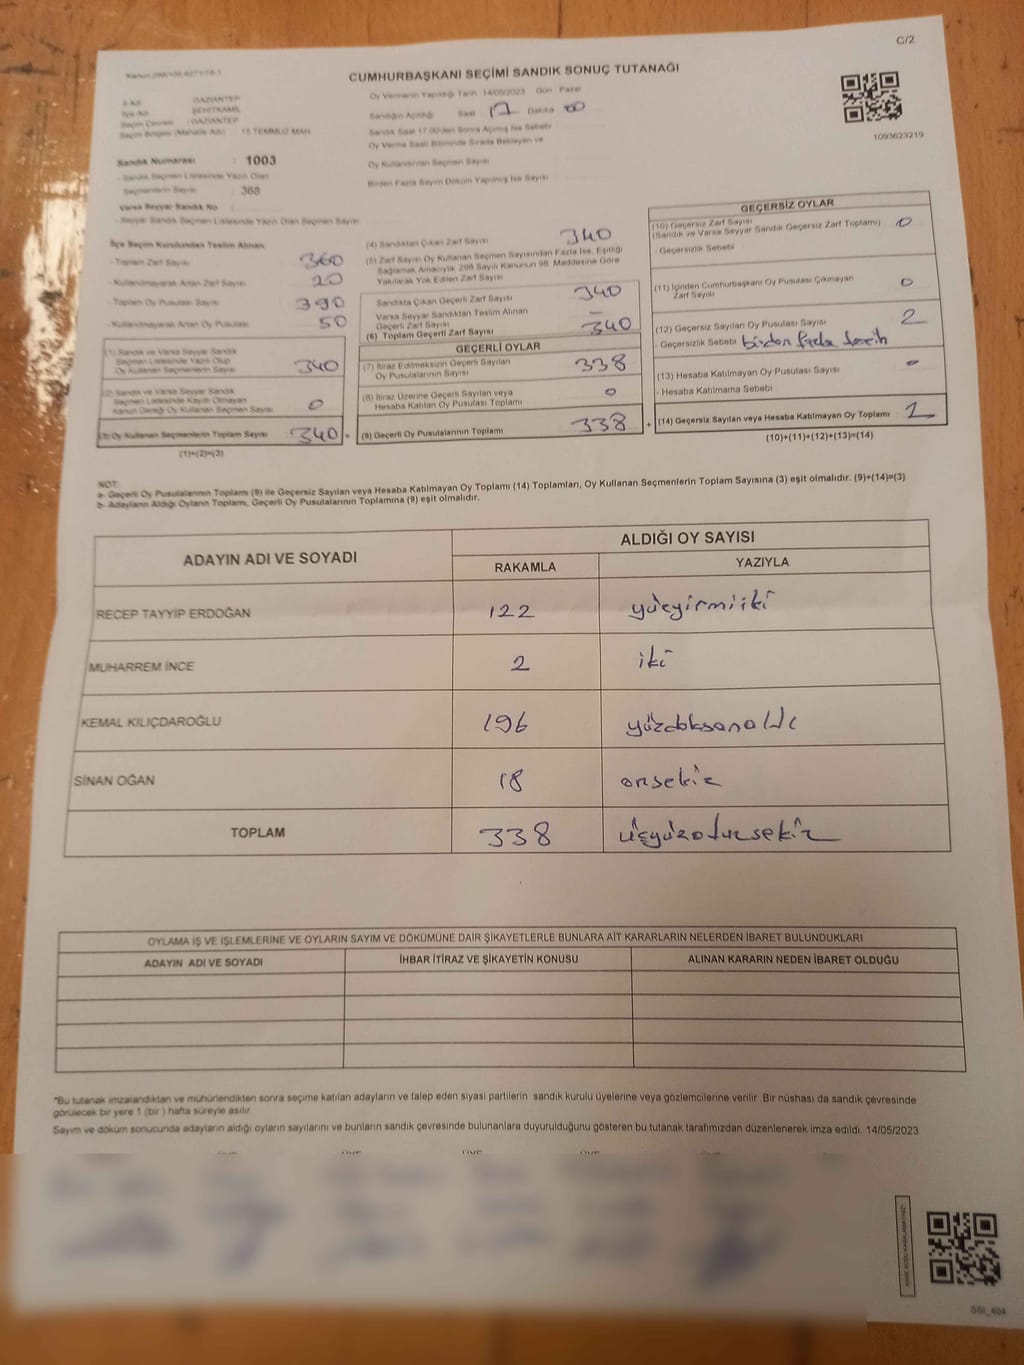 C/2
CUMHURBAŞKANI SEÇİMİ SANDIK SONUÇ TUTANAĞI
1093623219
İl Adı : GAZİANTEP
İlçe Adı : ŞEHİTKAMİL
Seçim Çevresi : GAZİANTEP
Seçim Bölgesi (Mahalle Adı) : 15 TEMMUZ MAH.
Sandık Numarası : 1003
- Sandık Seçmen Listesinde Yazılı Olan
Seçmenlerin Sayısı : 368
Varsa Seyyar Sandık No
- Seyyar Sandık Seçmen Listesinde Yazılı Olan Seçmen Sayısı
Oy Vermenin Yapıldığı Tarih 14/05/2023 Gün Pazar
Sandığın Açıldığı Saat 17 Dakika 00
Sandık Saat 17.00'den Sonra Açılmış İse Sebebi
Oy Verme Saati Bitiminde Sırada Bekleyen ve
Oy Kullandırılan Seçmen Sayısı
Birden Fazla Sayım Döküm Yapılmış İse Sayısı
İlçe Seçim Kurulundan Teslim Alınan:
- Toplam Zarf Sayısı 360
- Kullanılmayarak Artan Zarf Sayısı 20
- Toplam Oy Pusulası Sayısı 390
- Kullanılmayarak Artan Oy Pusulası 50
(1) Sandık ve Varsa Seyyar Sandık
Seçmen Listesinde Yazılı Olup
Oy Kullanan Seçmenlerin Sayısı 340
(2) Sandık ve Varsa Seyyar Sandık
Seçmen Listesinde Kayıtlı Olmayan
Kanun Gereği Oy Kullanan Seçmen Sayısı 0
(3) Oy Kullanan Seçmenlerin Toplam Sayısı 340 =
(1)+(2)=(3)
(4) Sandıktan Çıkan Zarf Sayısı 340
(5) Zarf Sayısı Oy Kullanan Seçmen Sayısından Fazla İse, Eşitliği
Sağlamak Amacıyla, 298 Sayılı Kanunun 98. Maddesine Göre
Yakılarak Yok Edilen Zarf Sayısı
Sandıkta Çıkan Geçerli Zarf Sayısı 340
Varsa Seyyar Sandıktan Teslim Alınan
Geçerli Zarf Sayısı —
(6) Toplam Geçerli Zarf Sayısı 340
GEÇERLİ OYLAR
(7) İtiraz Edilmeksizin Geçerli Sayılan
Oy Pusulalarının Sayısı 338
(8) İtiraz Üzerine Geçerli Sayılan veya
Hesaba Katılan Oy Pusulası Toplamı 0
(9) Geçerli Oy Pusulalarının Toplamı 338 +
GEÇERSİZ OYLAR
(10) Geçersiz Zarf Sayısı 0
(Sandık ve Varsa Seyyar Sandık Geçersiz Zarf Toplamı)
- Geçersizlik Sebebi
(11) İçinden Cumhurbaşkanı Oy Pusulası Çıkmayan
Zarf Sayısı 0
(12) Geçersiz Sayılan Oy Pusulası Sayısı 2
- Geçersizlik Sebebi birden fazla tercih
(13) Hesaba Katılmayan Oy Pusulası Sayısı 0
- Hesaba Katılmama Sebebi
(14) Geçersiz Sayılan veya Hesaba Katılmayan Oy Toplamı
(10)+(11)+(12)+(13)=(14)
NOT:
a- Geçerli Oy Pusulalarının Toplamı (9) ile Geçersiz Sayılan veya Hesaba Katılmayan Oy Toplamı (14) Toplamları, Oy Kullanan Seçmenlerin Toplam Sayısına (3) eşit olmalıdır. (9)+(14)=(3)
b- Adayların Aldığı Oyların Toplamı, Geçerli Oy Pusulalarının Toplamına (9) eşit olmalıdır.
ADAYIN ADI VE SOYADI
ALDIĞI OY SAYISI
RAKAMLA YAZIYLA
RECEP TAYYİP ERDOĞAN 122 yüzyirmiiki
MUHARREM İNCE 2 iki
KEMAL KILIÇDAROĞLU 196 yüzdoksanaltı
SİNAN OĞAN 18 onsekiz
TOPLAM 338 üçyüzotuzsekiz
OYLAMA İŞ VE İŞLEMLERİNE VE OYLARIN SAYIM VE DÖKÜMÜNE DAİR ŞİKAYETLERLE BUNLARA AİT KARARLARIN NELERDEN İBARET BULUNDUKLARI
ADAYIN ADI VE SOYADI İHBAR İTİRAZ VE ŞİKAYETİN KONUSU ALINAN KARARIN NEDEN İBARET OLDUĞU
*Bu tutanak imzalandıktan ve mühürlendikten sonra seçime katılan adayların ve talep eden siyasi partilerin sandık kurulu üyelerine veya gözlemcilerine verilir. Bir nüshası da sandık çevresinde
görülecek bir yere 1 (bir ) hafta süreyle asılır.
Sayım ve döküm sonucunda adayların aldığı oyların sayılarını ve bunların sandık çevresinde bulunanlara duyurulduğunu gösteren bu tutanak tarafımızdan düzenlenerek imza edildi. 14/05/2023